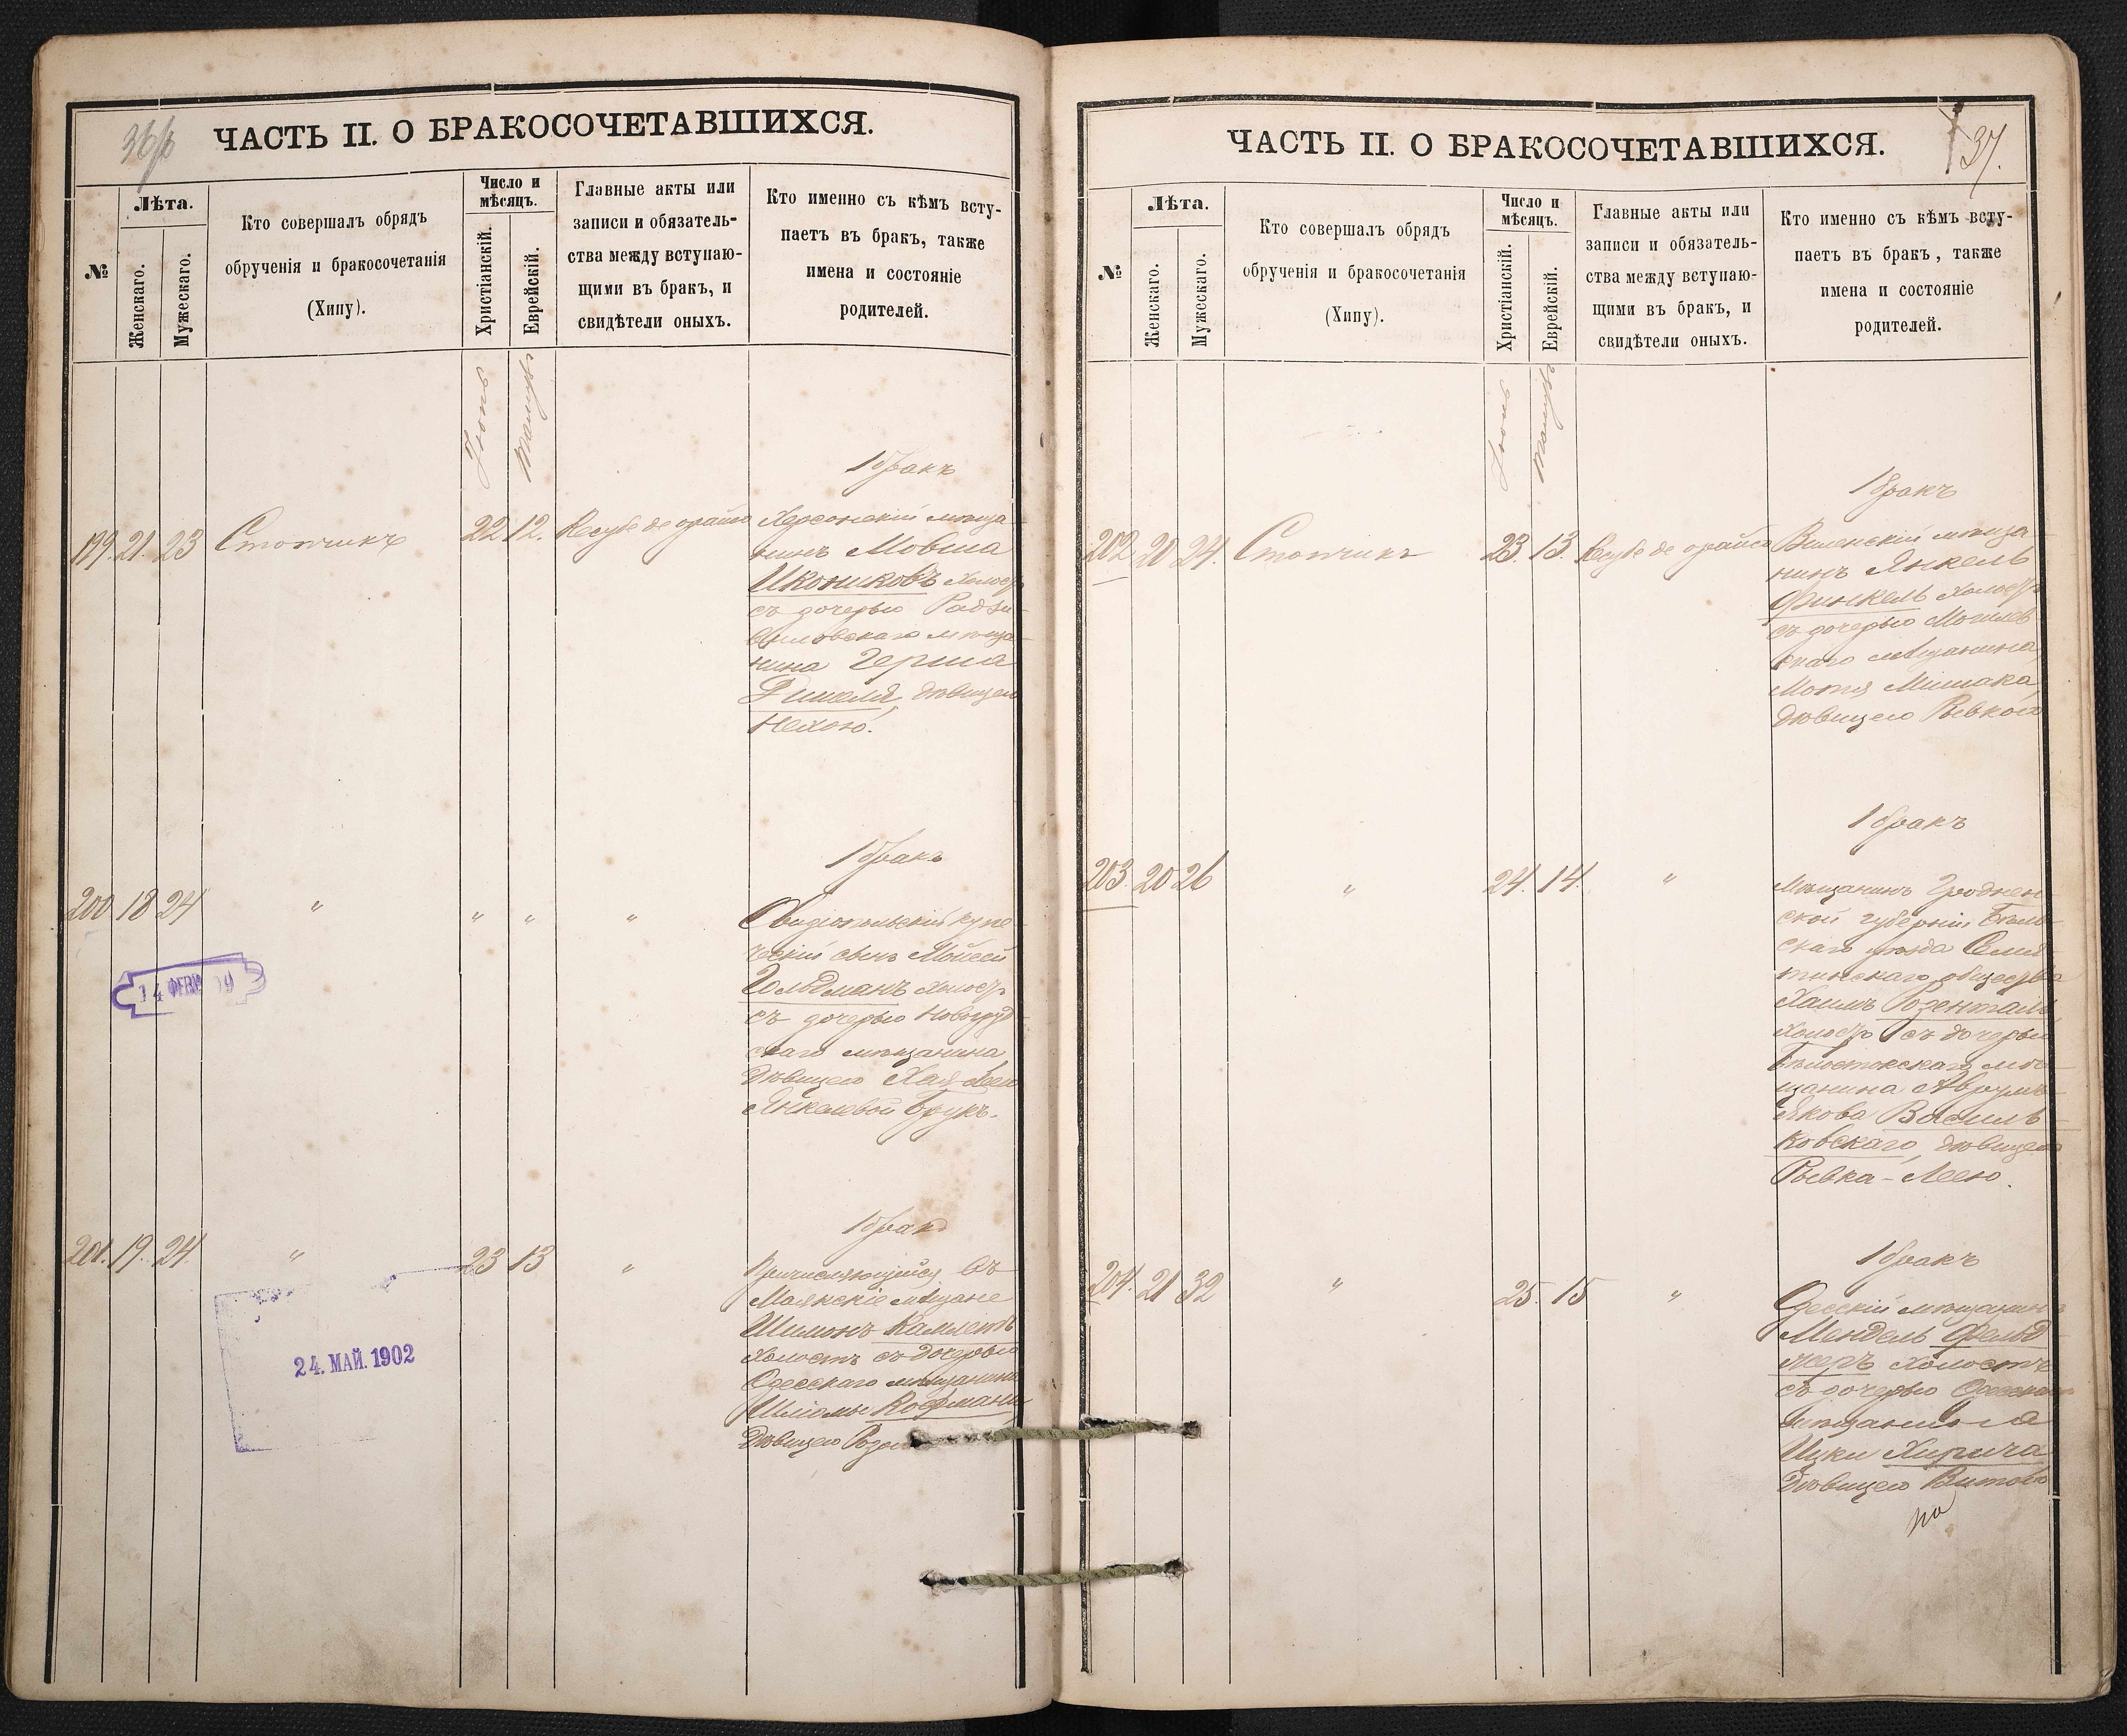 36/б
ЧАСТЬ II. О БРАКОСОЧЕТАВШИХСЯ.
№
Лѣта.
Женскаго.
Мужескаго.
Кто совершалъ обрядъ
обрученія и бракосочетанія
(Хипу).
Число и
мѣсяцъ.
Христіанскій.
Еврейскій.
Главные акты или
записи и обязатель-
ства между вступаю-
щими въ бракъ, и
свидѣтели оныхъ.
Кто именно съ кѣмъ всту-
паетъ въ бракъ, также
имена и состояніе
родителей.
Іюнь
Тамузъ
1 бракъ
199. 21. 23 Стопчикъ 22 12. Ксубе де орайсо Херсонскій мѣща-
нинъ Мовша
Икониковъ холостъ
съ дочерью Радзи-
виловскаго мѣща-
нина Герша
дѣвицею
Нехою.
1 бракъ
200 18 24 " " " " Овидіопольскій купе-
ческій сынъ Мойсей
Гольдманъ холостъ
съ дочерью Новогруд-
скаго мѣщанина
дѣвицею Хая-Леею
Янкелевой Брукъ.
14 ФЕВР 09
1 бракъ
201. 19. 24. " 23 13 " Причисляющійся въ
Маякскіе мѣщане
Шимонъ
холостъ съ дочерью
Одесскаго мѣщанина
Шліомы Кофмана
дѣвицею
24. МАЙ. 1902
37.
ЧАСТЬ II. О БРАКОСОЧЕТАВШИХСЯ.
№
Лѣта.
Женскаго.
Мужескаго.
Кто совершалъ обрядъ
обрученія и бракосочетанія
(Хипу).
Число и
мѣсяцъ.
Христіанскій.
Еврейскій.
Главные акты или
записи и обязатель-
ства между вступаю-
щими въ бракъ, и
свидѣтели оныхъ.
Кто именно съ кѣмъ всту-
паетъ въ бракъ, также
имена и состояніе
родителей.
Іюнь
Тамузъ
1 бракъ
202 20 24. Стопчикъ 23. 13. Ксубе де орайсо Виленскій мѣща-
нинъ Янкель
Финкель холостъ
съ дочерью Могилев-
скаго мѣщанина
Мотя Мишака
дѣвицею Рывкою
1 бракъ
203. 20 26 " 24. 14. " Мѣщанинъ Гроднен-
ской губерніи Бѣль-
скаго уѣзда Семя-
тинскаго общества
Хаимъ Розенталь
холостъ съ дочерью
Бѣлостокскаго мѣ-
щанина Аврумъ-
Якова Василь-
ковскаго, дѣвицею
Рывка-Леею.
1 бракъ
204. 21 32 " 25. 15 " Одесскій мѣщанинъ
Мендель Фельд-
черъ холостъ
съ дочерью Одесскаго
мѣщанина
Ицки
дѣвицею